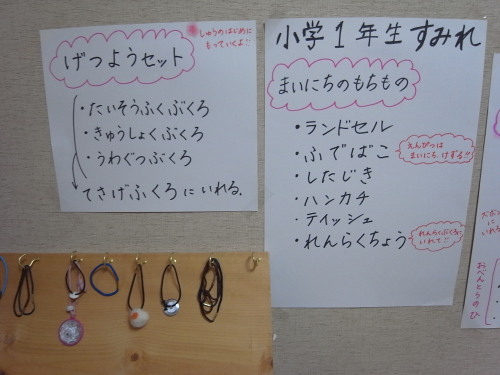 げつようセット
しゅうのはじめに
もっていくよ!!
・たいそうふくぶくろ
・きゅうしょくぶくろ
・うわぐつぶくろ
てさげふくろにいれる。
小学1年生すみれ
まいにちのもちもの
・ランドセル
・ふでばこ
えんぴつは
まいにち、けずる!!
・したじき
・ハンカチ
・ティッシュ
・れんらくちょう
れんらくぶくろに
いれて!!
おべんとうのひ